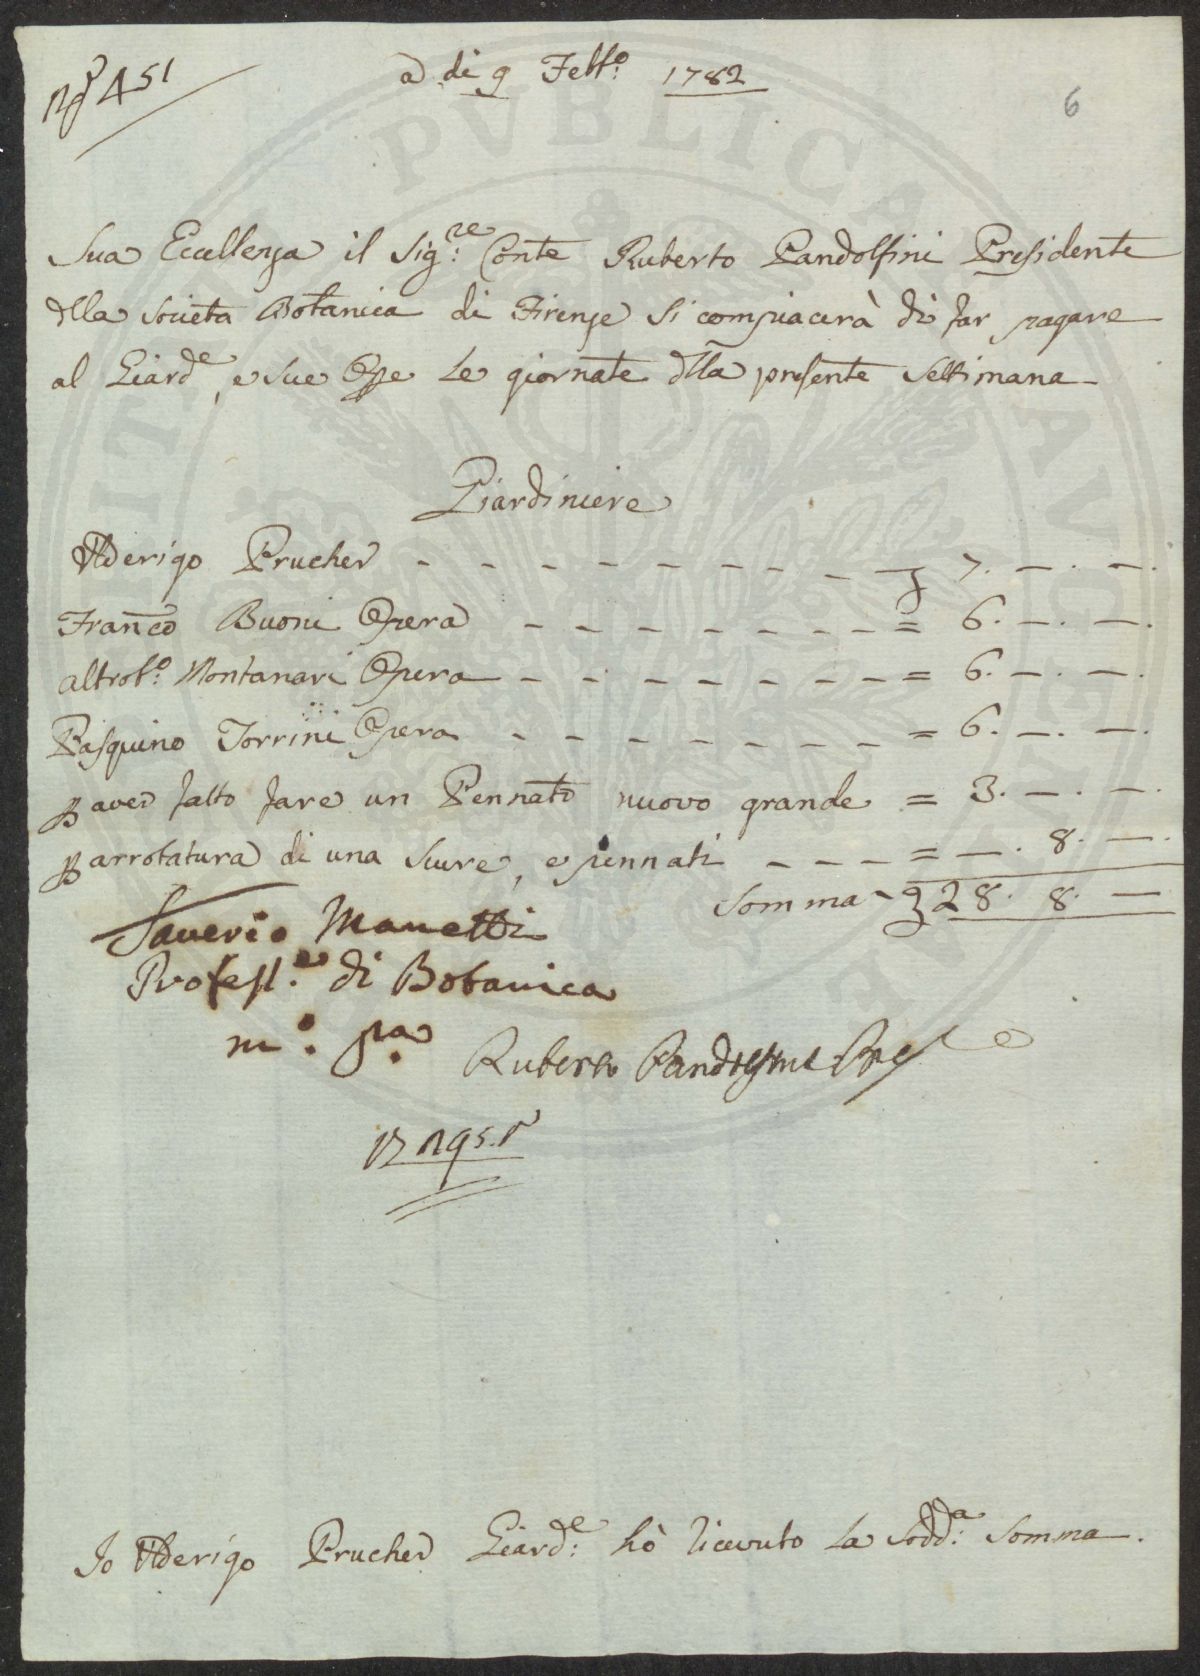 N.° 451
a di 9 Febb.° 1782
6
Sua Eccellenza il Sig.re Conte Ruberto Pandolfini Presidente
dlla Società Botanica di Firenze si compiacerà di far pagare
al Giard.e, e sue Ope le giornate dlla presente Settimana
Giardiniere
Ulderigo Prucher - - - - - - - - - 7. —. —.
Fran.co Buoni Opera - - - - - - - = 6. —. —.
altrob.° Montanari Opera - - - - - - - = 6. —. —.
Pasquino Torrini Opera - - - - - - - = 6. —. —.
p aver fatto fare un Pennato nuovo grande = 3. —. —.
p arrotatura di una scure, e pennati - - - = —. 8. —.
Somma 28. 8. —
Saverio Manetti
Profess.e di Botanica
m.° pa.
Ruberto Pandolfini Pres.e
Io Ulderigo Prucher Giard.e hò ricevuto la sodd.a Somma.
PVBLICA